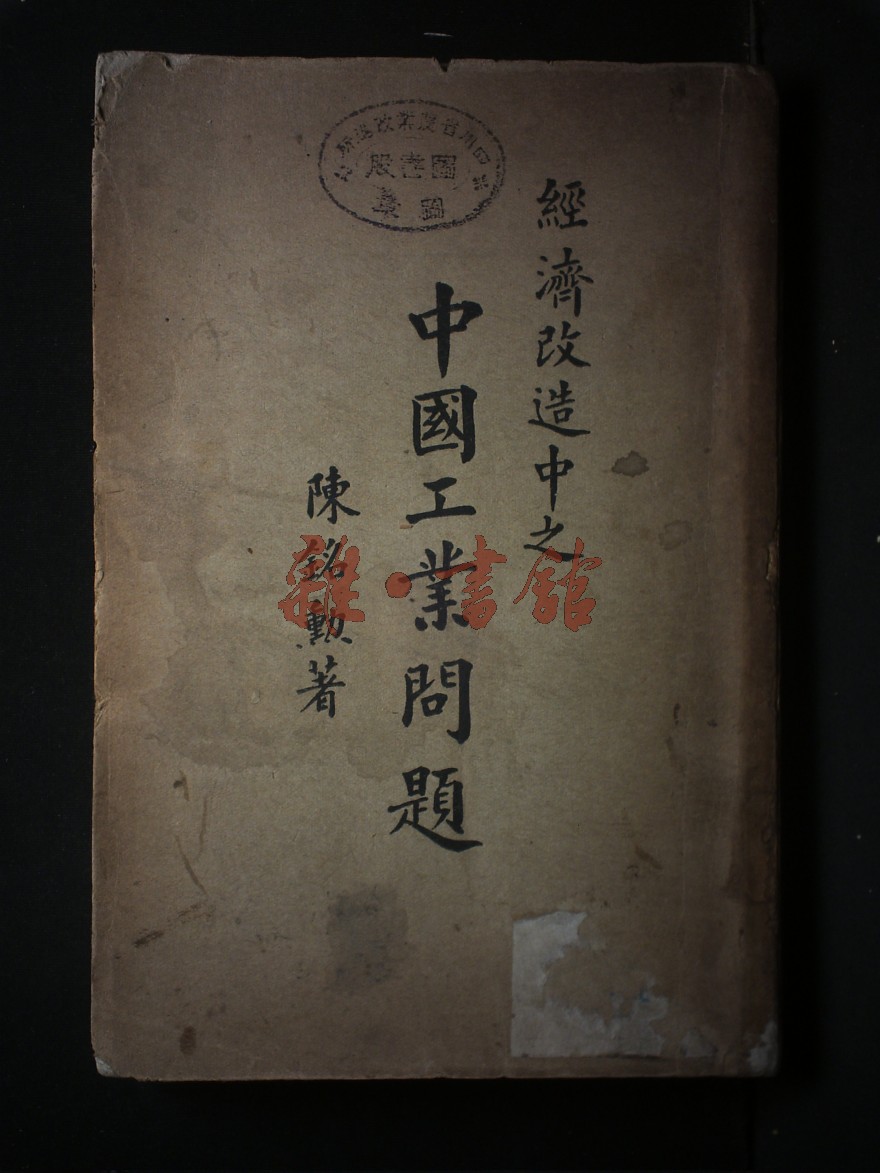 經濟改造中之
中國工業問題
陳銘勲著
雜·書館
圖書股
圖章